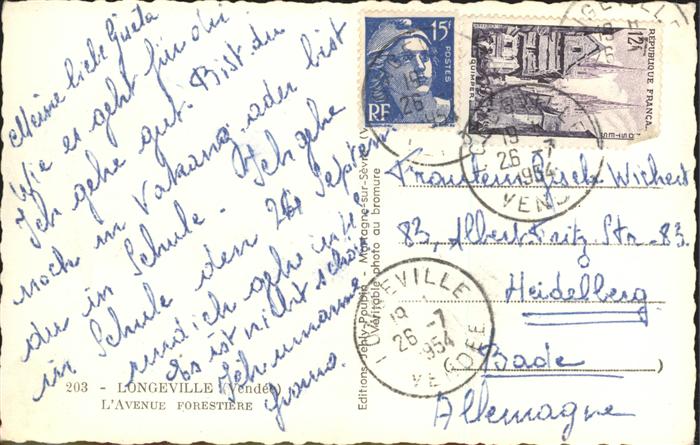 Meine liebe Gisela
Wie es geht für dir
Ich gehe gut. Bist du
noch in Vakanz oder bist
du in Schule. Ich gehe
in Schule den 26 Septem.
und ich gehe in
Es ist nicht schön
203 - LONGEVILLE (Vendée)
L'AVENUE FORESTIÈRE
Editions Montagne-sur-Sèvre (V
(Véritable photo au bromure)
15F
POSTES
RF
12F
RÉPUBLIQUE FRANÇAISE
QUIMPER
LONGEVILLE
19
26-7
1954
VENDÉE
LONGEVILLE
19
26-7
1954
VENDÉE
Fraulein Gisele Wichert
83, Albert Fritz Str. 83
Heidelberg
Bade
Allemagne